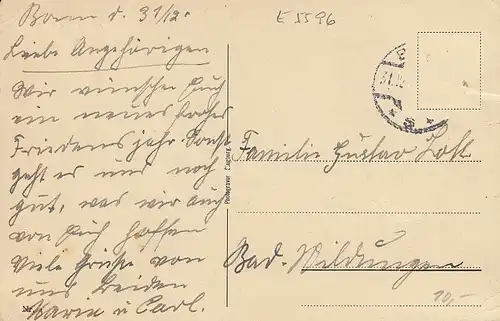 Bonn d. 31/12.
Liebe Angehörigen
Wir wünschen Euch
ein neues frohes
Friedensjahr. Sonst
geht es uns noch
gut, was wir auch
von Euch hoffen
Viele Grüße von
uns beiden
Maria u Carl.
Nr.
E 5596
31.12
Familie Gustav
Bad-Wildungen
10,-